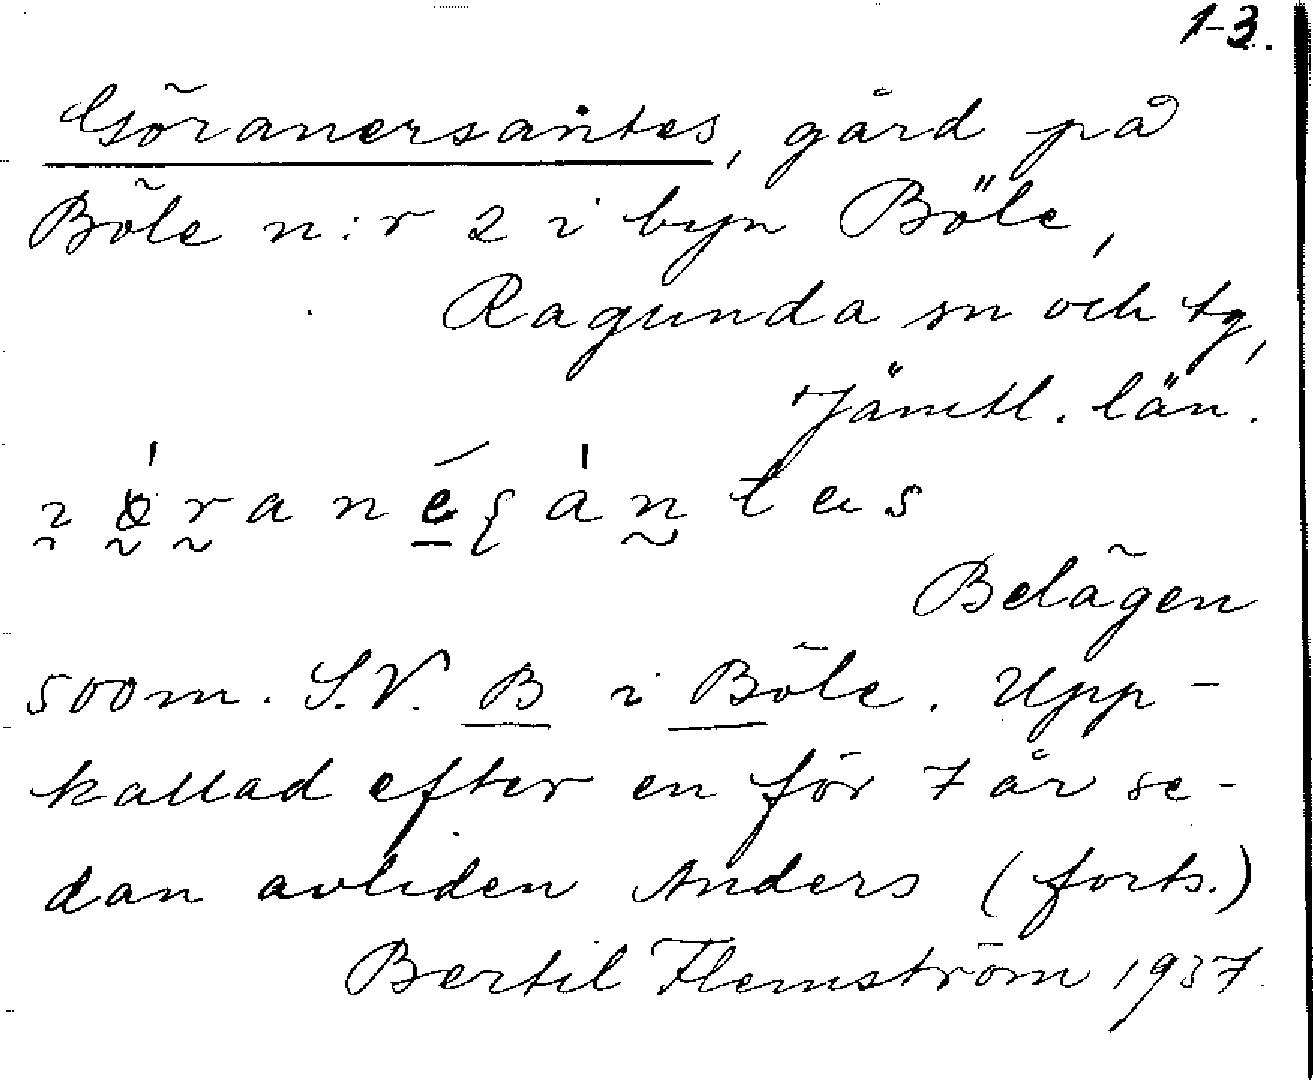 1-3.
Göranersantes, gård på
Böle n:r 2 i byn Böle,
Ragunda sn och tg,
Jämtl. län.
Belägen
500m. S.V. B i Böle. Upp-
kallad efter en för 7 år se-
dan avliden Anders (forts.)
Bertil Flemström 1937.